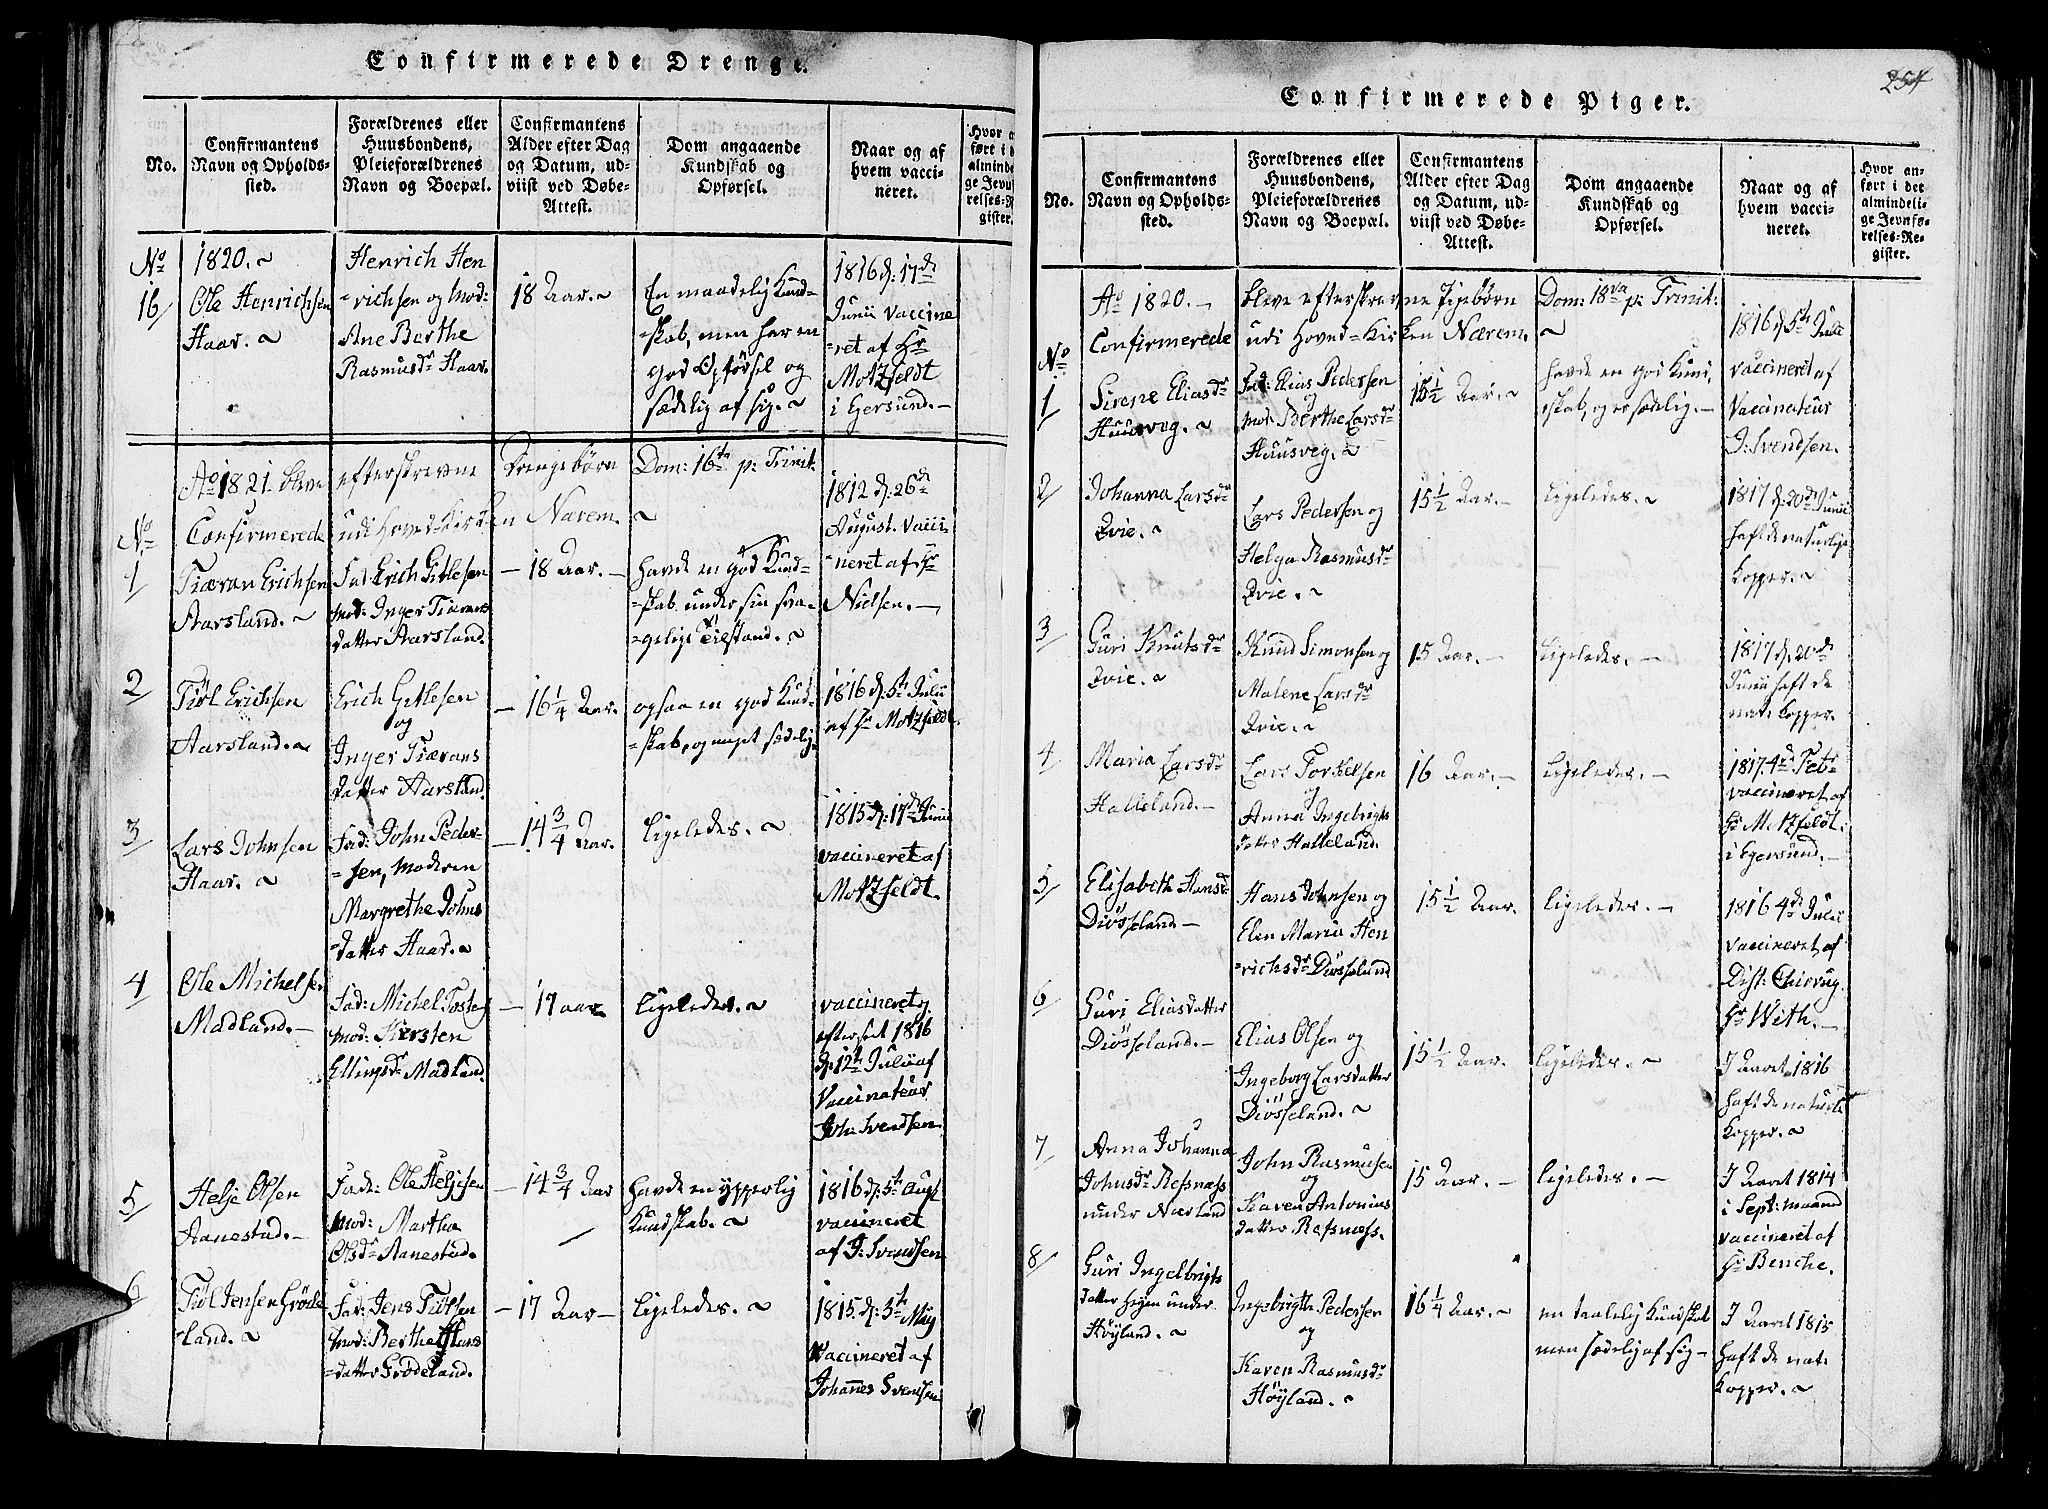 Confirmerede Drenge.
No.
Confirmantens
Navn og Opholds-
sted.
Forældrenes eller
Huusbondens,
Pleieforældrenes
Navn og Boepæl.
Confirmantens
Alder efter Dag
og Datum, ud-
viist ved Døbe-
Attest.
Dom angaaende
Kundskab og
Opførsel.
Naar og af
hvem vacci-
neret.
Hvor a
ført i d
almind
ge Jevnf
relses-R
gister.
No
16
1820.
Ole Henrichsen
Haar.
Henrich Hen
richsen og Mod:
Ane Berthe
Rasmusdr Haar.
18 Aar.
En maadelig Kund-
skab, men har en
god Opførsel og
sædelig af sig.
1816 d: 17de
Junii vaccine
ret af Hr
Motzfeldt
i Egersund.
Ao 1821 bleve efterskrevne Drengebørn Dom: 16de p: Trinit:
Confirmerede udi Hoved-Kirken Nærem.
No
1
Tiæran Erichsen
Aarsland.
Fad: Erich Gitlesen
mod: Inger Tiærans
datter Aarsland.
18 Aar.
havde en god Kund-
skab under sin sva-
gelige Tilstand.
1812 d: 26de
August. vacci-
neret af Hr
Nielsen.
2
Tiøl Erichsen
Aarsland.
Erich Gitlesen
og
Inger Tiærans
datter Aarsland.
16 1/4 Aar.
ogsaa en god Kund-
skab, og meget sædelig.
1816 d: 5te Julii
af Hr Motzfeldt.
3
Lars Johnsen
Haar.
Fad: John Peder-
sen, Moderen
Margrethe Johns
datter Haar.
14 3/4 Aar.
Ligeledes.
1815 d: 17de Junii
vaccineret af
Motzfeldt.
4
Ole Michelsen
Madland.
Fad: Michel Tostens
mod: Kirsten
Ellingsdr Madland.
17 aar
ligeledes.
vaccineret
efterseet 1816
d: 12te Julii af
Vaccinateur
Joh: Svendsen.
5
Helje Olsen
Aanestad.
Fade: Ole Heljesen
Mod: Martha
Olsdr Aanestad.
14 3/4 Aar
havde en ypperlig
Kundskab.
1816 d: 5te Aug:
vaccineret
af J: Svendsen
6
Tiøl Jensen Grøde
land.
Fad: Jens Tiølsen
mod: Berthe Hans
datter Grødeland.
17 Aar
Ligeledes.
1815 d: 5te Maj
Vaccineret af
Johannes Svensen
254
Confirmerede Piger.
No.
Confirmantens
Navn og Opholds-
sted.
Forældrenes eller
Huusbondens,
Pleieforældrenes
Navn og Boepæl.
Confirmantens
Alder efter Dag
og Datum, ud-
viist ved Døbe-
Attest.
Dom angaaende
Kundskab og
Opførsel.
Naar og af
hvem vacci-
neret.
Hvor an-
ført i det
almindeli-
ge Jevnfø-
relses-Re-
gister.
Ao 1820. bleve efterskrevne Pigebørn Dom: 18va p: Trinit:
Confirmerede udi Hoved-Kirken Nærem.
No
1
Sirene Eliasdr
Huusveg.
Fad: Elias Pedersen
og
mod: Berthe Larsdr
Huusveg.
15 1/2 Aar.
havde en god Kund
skab, og er sædelig.
1816 d: 5te Julii
vaccineret af
Vaccinateur
J: Svendsen.
2
Johanna Larsdr
Qvie.
Lars Pedersen og
Helga Rasmusdr
Qvie.
15 1/2 Aar.
Ligeledes.
1817 d: 20de Junii
haft de naturlige
Kopper.
3
Guri Knutsdr
Qvie.
Knud Simonsen og
Malene Larsdr
Qvie.
15 Aar.
Ligeledes.
1817 d: 20de
Junii haft de
nat: Kopper.
4
Maria Larsdr
Halleland.
Lars Torkelsen
og
Anna Ingebrigts
datter Halleland.
16 Aar.
Ligeledes.
1817. 4de Febr
vaccineret af
Hr Motzfeldt
i Egersund.
5
Elisabeth Hansdr
Diösseland
Hans Johnsen og
Elen Maria Hen
richsdr Diösseland
15 1/2 Aar.
ligeledes.
1816 4de Julii
vaccineret af
Dist: Chirurg.
Hr With.
6
Guri Eliasdatter
Diösseland.
Elias Olsen og
Ingeborg Larsdatter
Diösseland.
15 1/2 Aar.
Ligeledes.
I Aaret 1816
haft de naturli
Kopper.
7
Anna Johanna
Johnsdr Refsnæss
under Nærland
John Rasmusen
og
Karen Antonius
datter Refsnæss.
15 Aar.
ligeledes.
I Aaret 1814
i Sept: maaned
vaccineret af
Hr Benche.
8
Guri Ingelbrigts
datter Hejen under
Höyland.
Ingebrigth Pedersen
og
Karen Rasmusdr
Höyland.
16 1/4 Aar.
en taalelig Kundskab
men sædelig af sig
I Aaret 1815
haft de nat:
Kopper.